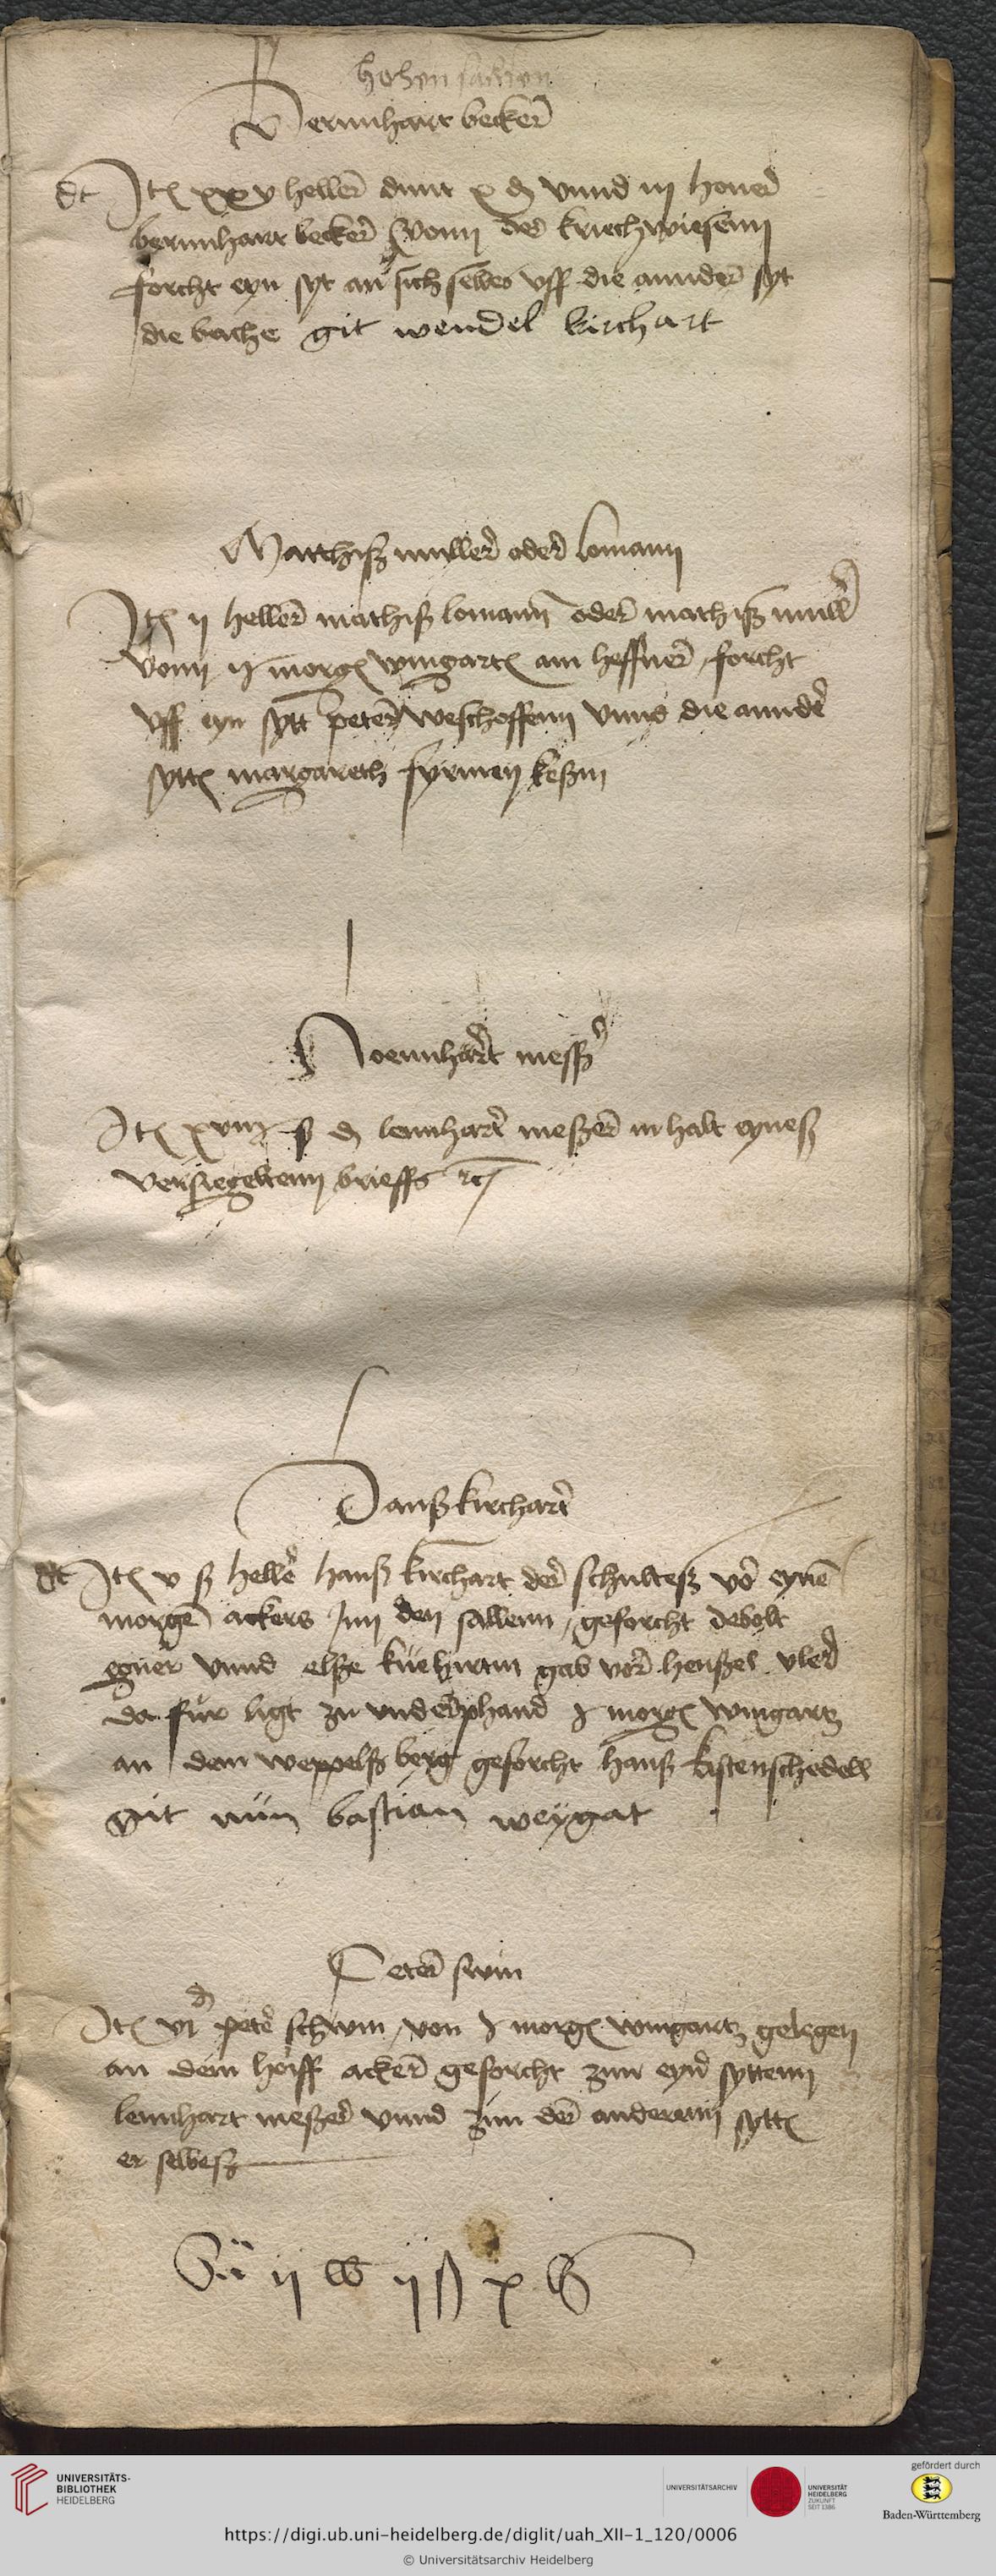 hohen sachsen
Bernnhart becker
dt Itē xxv heller dunt x ₰ vnnd iij honer
bernnhart becker vonn der kriechwiesenn
forcht eyn syt an sich selbes vff die annder syt
die bache git wendel kirchart
Matthiß muller oder lomann
Itē ij heller mathiß lomann oder mathiß muller
vonn ij morgē wingartē am heffner forcht
vff eyn sytt peter weschoffenn vnnd die ander
syttē margareth keßin
Loennhart messer
Itē ß ₰ lennhart meßer in halt eyneß
versiegeltenn brieffs rc
Hanß kirchart
dt Itē v ß heller hanß kirchart der schulteß vor eynē
morgē ackers Inn den sallenn geforcht debolt
vnnd elße kuehirtin gab vor henßel vler
da fur ligt zu vnderphand j morgē wingartz
an dem weppelß berg geforcht hanß kistenschedell
Git nün bastian weygat
Peter swin
Itē vj ₰ peter schwin von j morgē wingartz gelegen
an dem hoiff acker geforcht zur eyner syttenn
lennhart meßer vnnd zun der anderenn syttē
er selbeß
Sũ ij lb ij ß x ₰
UNIVERSITÄTS-
BIBLIOTHEK
HEIDELBERG
UNIVERSITÄTSARCHIV
UNIVERSITÄT
HEIDELBERG
ZUKUNFT
SEIT 1386
gefördert durch
Baden-Württemberg
https://digi.ub.uni-heidelberg.de/diglit/uah_XII-1_120/0006
© Universitätsarchiv Heidelberg